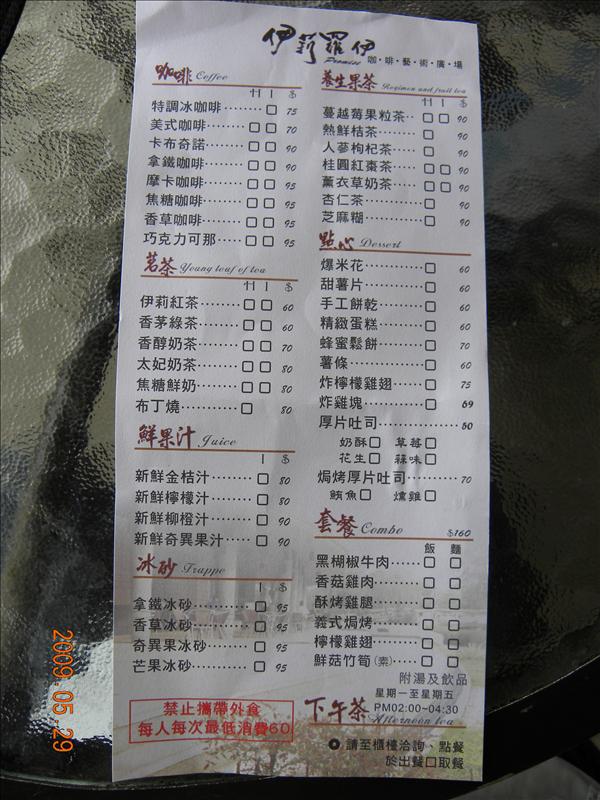 伊莉羅伊
Promise 咖·啡·藝·術·廣·場
咖啡 Coffee
H I $
特調冰咖啡········□ 75
美式咖啡······□□ 70
卡布奇諾······□□ 90
拿鐵咖啡······□□ 95
摩卡咖啡······□□ 95
焦糖咖啡······□□ 95
香草咖啡······□□ 95
巧克力可那·····□□ 95
茗茶 Young leaf of tea
H I $
伊莉紅茶······□□ 60
香茅綠茶······□□ 60
香醇奶茶······□□ 70
太妃奶茶······□□ 80
焦糖鮮奶······□□ 80
布丁燒··········□ 80
鮮果汁 Juice
I $
新鮮金桔汁·······□ 80
新鮮檸檬汁·······□ 80
新鮮柳橙汁·······□ 90
新鮮奇異果汁····□ 90
冰砂 Frappe
I $
拿鐵冰砂··········□ 95
香草冰砂··········□ 95
奇異果冰砂·······□ 95
芒果冰砂··········□ 95
禁止攜帶外食
每人每次最低消費60
養生果茶 Regimen and fruit tea
H I $
蔓越莓果粒茶··□□ 90
熱鮮桔茶·······□ 90
人蔘枸杞茶····□ 90
桂圓紅棗茶····□□ 90
薰衣草奶茶····□□ 90
杏仁茶··········□ 90
芝麻糊··········□ 90
點心 Dessert
爆米花··········□ 60
甜薯片··········□ 60
手工餅乾·······□ 60
精緻蛋糕·······□ 60
蜂蜜鬆餅·······□ 70
薯條·············□ 60
炸檸檬雞翅····□ 75
炸雞塊··········□ 69
厚片吐司·············50
奶酥□ 草莓□
花生□ 蒜味□
焗烤厚片吐司··········70
鮪魚□ 燻雞□
套餐 Combo $160
飯 麵
黑楜椒牛肉····□□
香菇雞肉·······□□
酥烤雞腿·······□□
義式焗烤·······□□
檸檬雞翅·······□□
鮮菇竹筍(素)···□□
附湯及飲品
星期一至星期五
下午茶 PM02:00~04:30
Afternoon tea
請至櫃檯洽詢、點餐
於出餐口取餐
2009.05.29